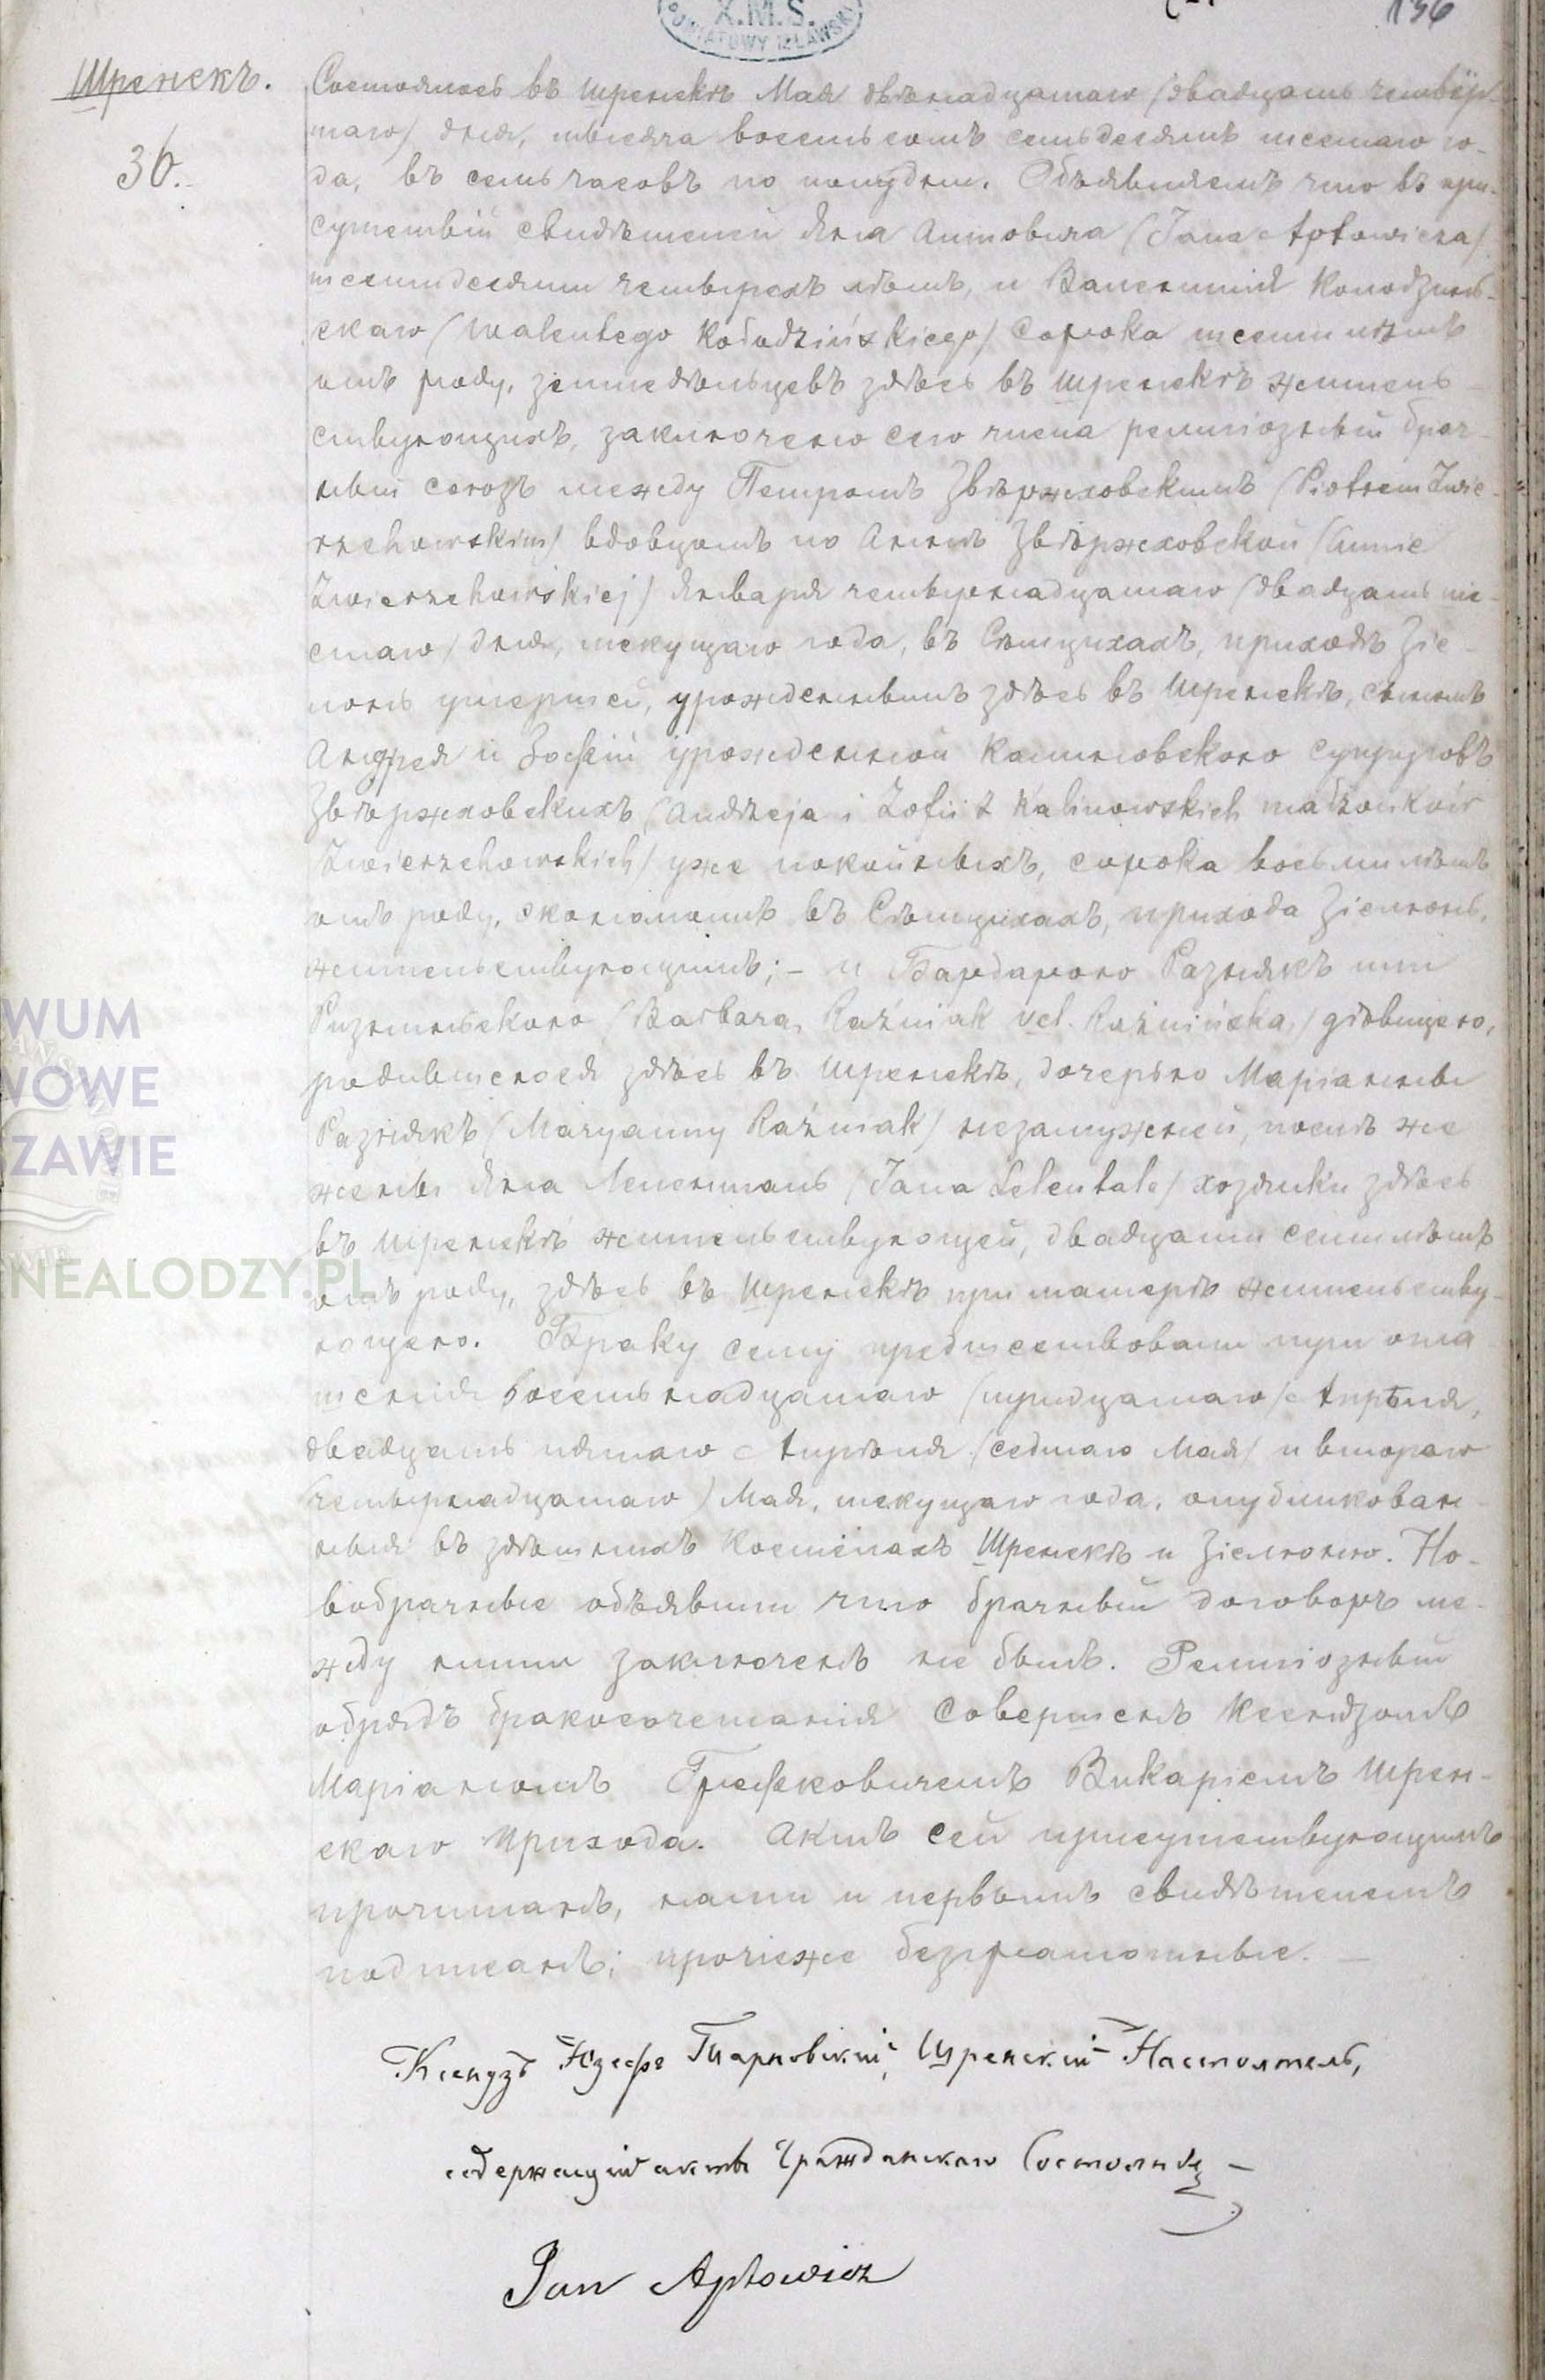 X.M.S.
POWIATOWY MŁAWSKI
136
Шренскъ.
36.
Состоялось въ Шренскѣ Мая двѣнадцатаго /двадцать четвёр-
таго/ дня, тысяча восемьсотъ семьдесятъ шестаго го-
да, въ семь часовъ по полудни. Объявляемъ что въ при-
сутствіи свидѣтелей Яна Аптовича /Jana Aptowicza/
шестидесяти четырехъ лѣтъ, и Валентія Колодзинь-
скаго /Walentego Kołodzińskiego/ сорока шести лѣтъ
отъ роду, земледѣльцевъ здѣсь въ Шренскѣ житель-
ствующихъ, заключено сего числа религіозный брач-
ный союзъ между Петромъ Звѣржховскимъ /Piotrem Zwie-
rzchowskim/ вдовцомъ по Аннѣ Звѣржховской /Annie
Zwierzchowskiej/ Января четырнадцатаго /двадцать ше-
стаго/ дня, текущаго года, въ Сѣмцихахъ, приходѣ Зіе-
лонь умершей, урожденнымъ здѣсь въ Шренскѣ, сыномъ
Андрея и Зофіи урожденной Калиновскою супруговъ
Звѣржховскихъ /Andrzeja i Zofii z Kalinowskich małżonków
Zwierzchowskich/ уже покойныхъ, сорока восьми лѣтъ
отъ роду, экономомъ въ Сѣмцихахъ, прихода Зіелонь,
жительствующимъ; – и Барбарою Разнякъ или
Разниньскою /Barbarą Raźniak vel. Raźnińską/ дѣвицею,
родившеюся здѣсь въ Шренскѣ, дочерью Маріанны
Разнякъ /Maryanny Raźniak/ незамужней, послѣ же
жены Яна Леленталь /Jana Lelentala/ хозяйки здѣсь
въ Шренскѣ жительствующей, двадцати семи лѣтъ
отъ роду, здѣсь въ Шренскѣ при матерѣ жительству-
ющею. Браку сему предшествовали три огла
шенія восемьнадцатаго /тридцатаго/ Апрѣля,
двадцать пятаго Апрѣля /седмаго Мая/ и втораго
/четырнадцатаго/ Мая, текущаго года, опубликован-
ныя въ здѣшнихъ Костёлахъ Шренскѣ и Зіелоню. Но-
вобрачные объявили что брачный договоръ ме-
жду ними заключенъ не былъ. Религіозный
обрядъ бракосочетанія совершенъ Ксендзомъ
Маріаномъ Грефковичемъ Викаріемъ Шрен-
скаго Прихода. Актъ сей присутствующимъ
прочитанъ, нами и первымъ свидѣтелемъ
подписанъ; прочіе же безграмотные. –
Ксендзъ Юзефъ Тарновскій, Шренскій Настоятель,
содержащій акты Гражданскаго Состоянія –
Jan Aptowicz
WUM
WOWE
SZAWIE
ENEALODZY.PL